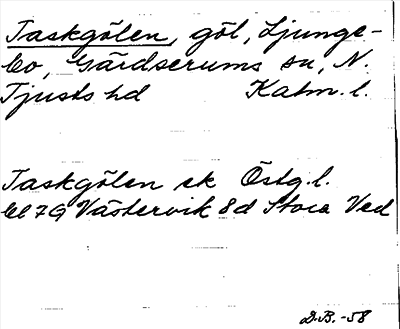 Taskgölen, göl, Ljunge-
bo, Gärdserums sn, N.
Tjusts hd Kalm. l.
Taskgölen ek Östg. l.
bl 7G Västervik 8d Stora Ved
D.B. -58